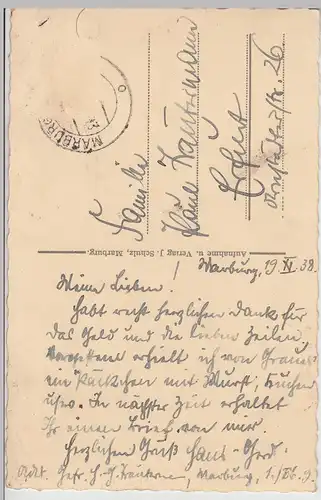 MARBURG
Familie
Erfurt
Aufnahme u. Verlag J. Schulz, Marburg.
Marburg, 19. XI. 38.
Meine Lieben!
Habt recht herzlichen Dank für
das Geld und die lieben Zeilen,
erhielt ich von
ein Päckchen mit Wurst, Kuchen
usw. In nächster Zeit erhaltet
Ihr einen Brief von mir.
Herzlichen Gruß Hans-Gerd.
Gefr. H.-G. Marburg,